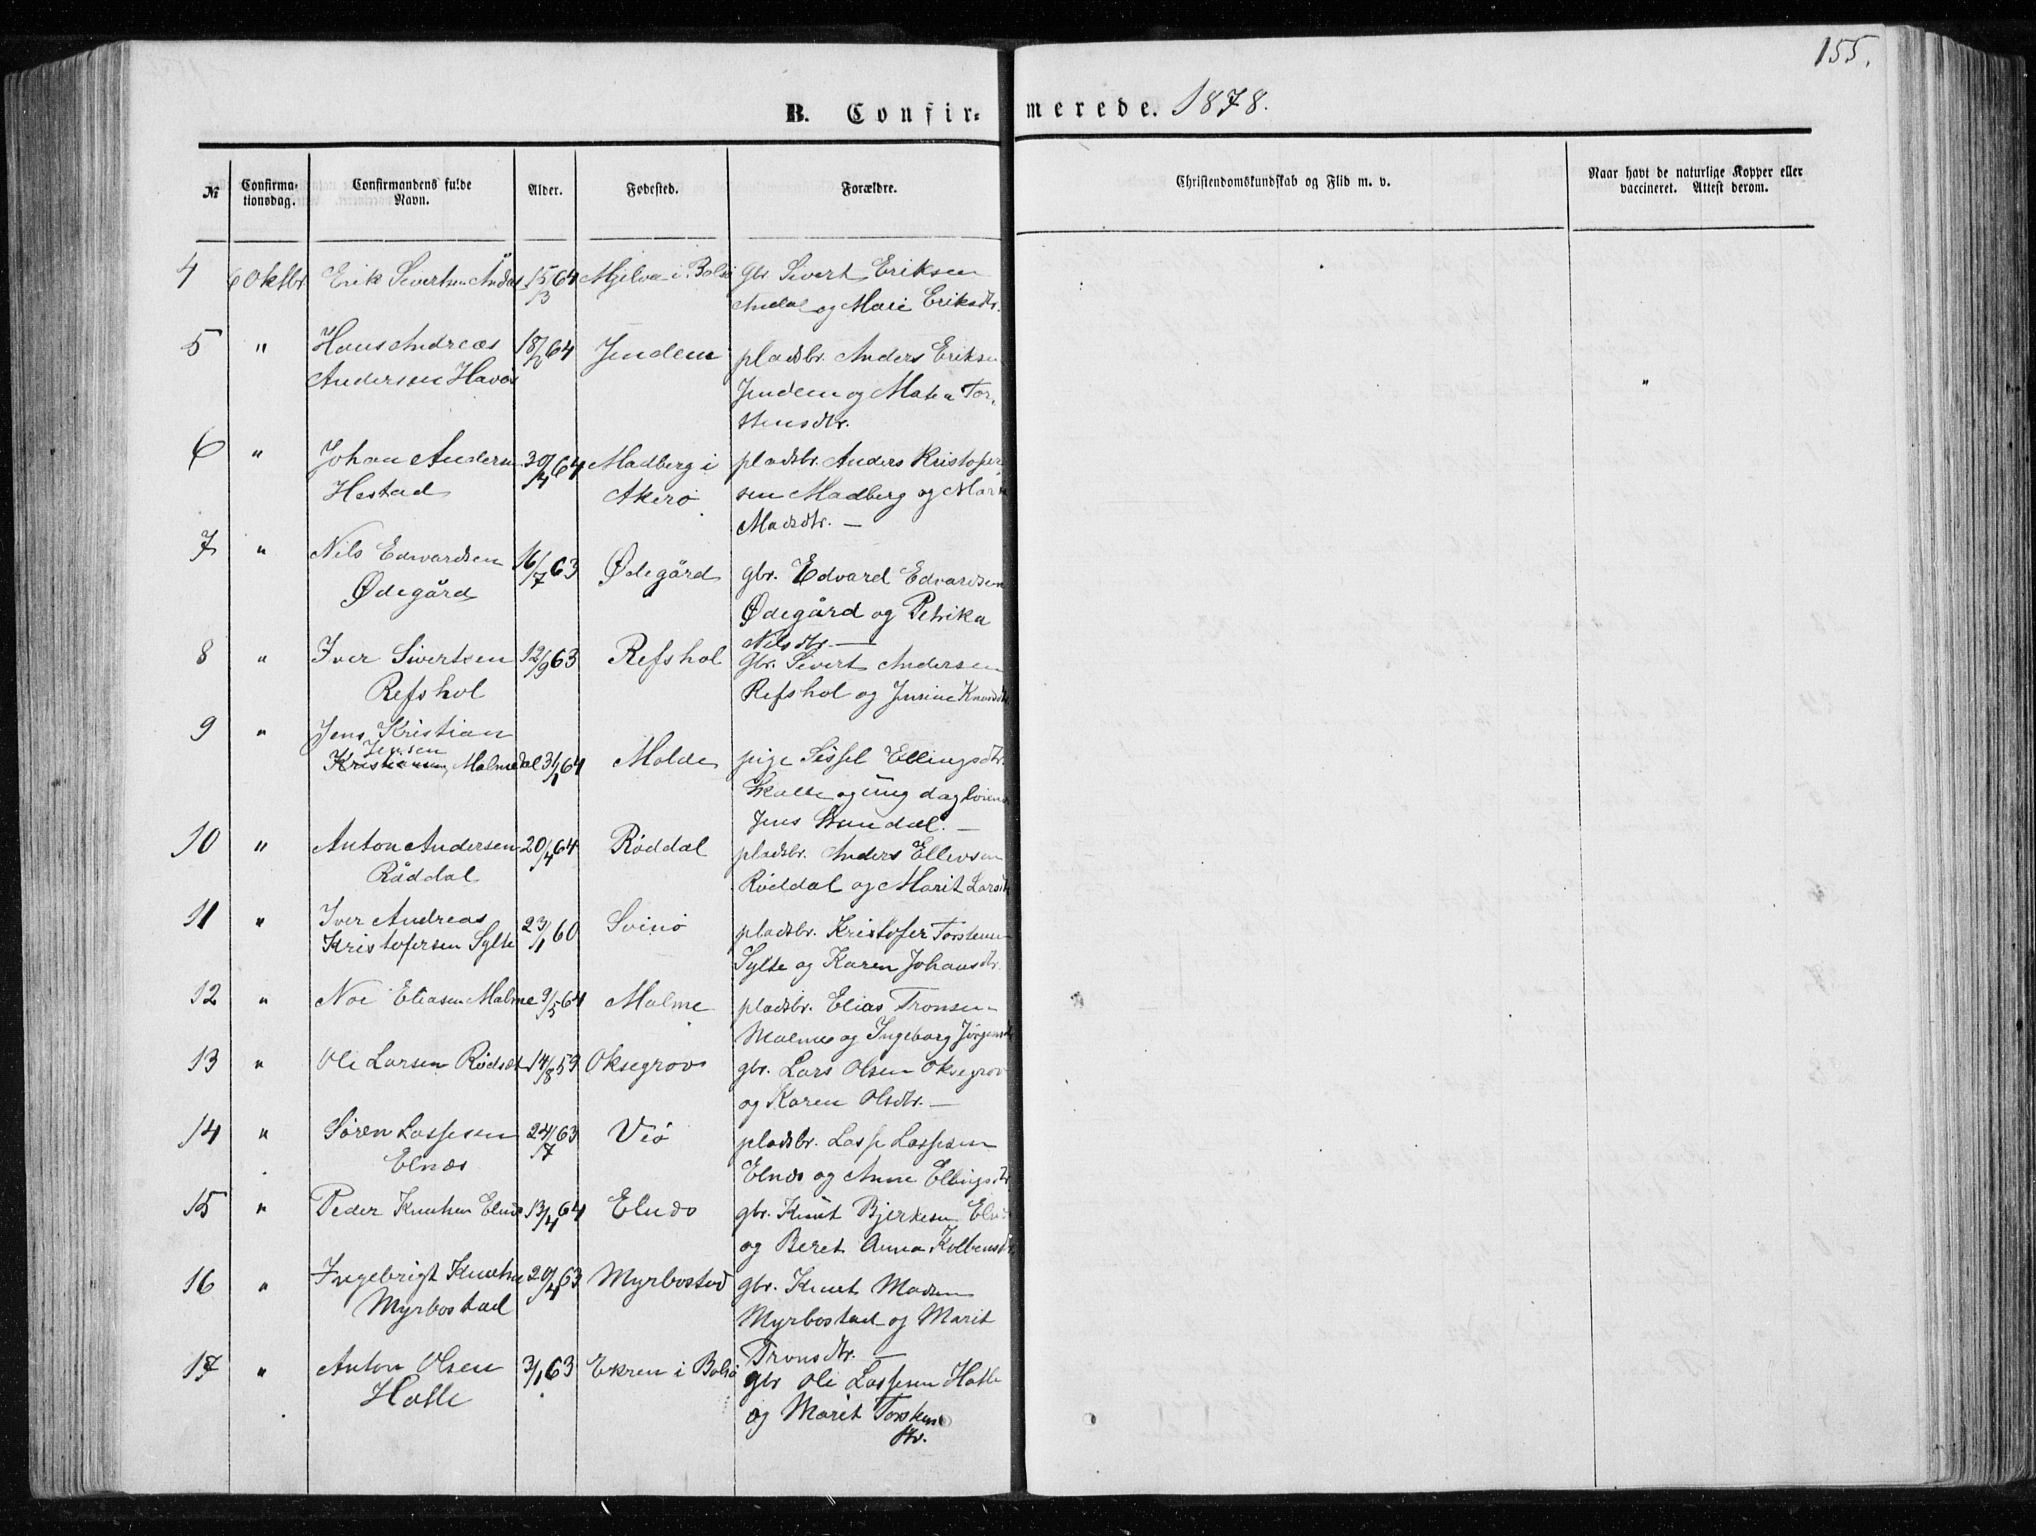 155.
B. Confir- merede. 1878.
№ Confirma-tionsdag. Confirmandens fulde Navn. Alder. Fødested. Forældre. Christendomskundskab og Flid m. v. Naar havt de naturlige Kopper eller vaccineret. Attest derom.
4 6 Oktbr Erik Sivertsen 15/3 64 Mjelva i Bolsø gbr Sivert Eriksen
Andal og Mari Eriksdtr.
5 " Hans Andreas 18/ 64 Jendem pladsbr. Anders Eriksen
Andersen Havås Jendem og Mate Tor-
stensdtr.
6 " Johan Andersen 30/4 64 Madberg i pladsbr. Anders Kristofer
Hestad Akerø sen Madberg og
Madsdtr. —
7 " Nils Edvardsen 16/7 63 Ødegård gbr. Edvard Edvardsen
Ødegård Ødegård og Petrika
Nilsdtr. —
8 " Iver Sivertsen 12/9 63 Refshol gbr. Sivert Andersen
Refshol Refshol og Jensine Knudsdtr
9 " Jens Kristian
Jensen
Kristiansen Malmedal 31/1 64 Molde pige Sissel Ellingsdtr.
og ung
Jens —
10 " Anton Andersen 20/4 64 Röddal pladsbr. Anders Ellevsen
Råddal Röddal og Marit Larsdtr
11 " Iver Andreas 23/1 60 Svinø pladsbr. Kristofer Torstensen
Kristofersen Sylte Sylte og Karen Johansdtr.
12 " Noe Eliasen Malme 9/5 64 Malme pladsbr. Elias Tronsen
Malme og Ingeborg Jørgensdtr
13 " Ole Larsen Rødsæt 14/8 59 Oksegrov gbr. Lars Olsen Oksegrov
og Karen Olsdtr. —
14 " Søren Lassesen 24/7 63 Veø pladsbr. Lasse Lassesen
Elnæs Elnæs og Anne Ellingsdtr.
15 " Peder Knutsen Elnæs 13/4 64 Elnæs gbr. Knut Bjerkesen Elnæs
og Beret Anna Kolbensdtr.
16 " Ingebrigt Knutsen 20/4 63 Myrbostad gbr. Knut Madsen
Myrbostad Myrbostad og Marit
Tronsdtr. —
17 " Anton Olsen 3/1 63 Ekren i Bolsø gbr Ole Lassesen Hatle
Hatle og Marit Torstens
dtr.